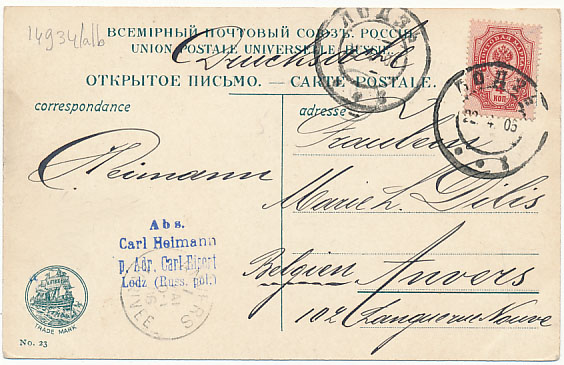 14934/alb
ВСЕМІРНЫЙ ПОЧТОВЫЙ СОЮЗЪ. РОССІЯ.
UNION POSTALE UNIVERSELLE. RUSSIE.
Drucksache
ОТКРЫТОЕ ПИСЬМО. — CARTE POSTALE.
ЛОДЗЬ
4
КОП
ЛОДЗЬ
22.4.06
correspondance
adresse
Fräulein
Reimann
Marie L. Dilis
Abs.
Carl Heimann
p. Adr. Carl
Lodz (Russ. pol.)
Belgien Anvers
102 Longue rue Neuve
ANVERS
TRADE MARK
No. 23